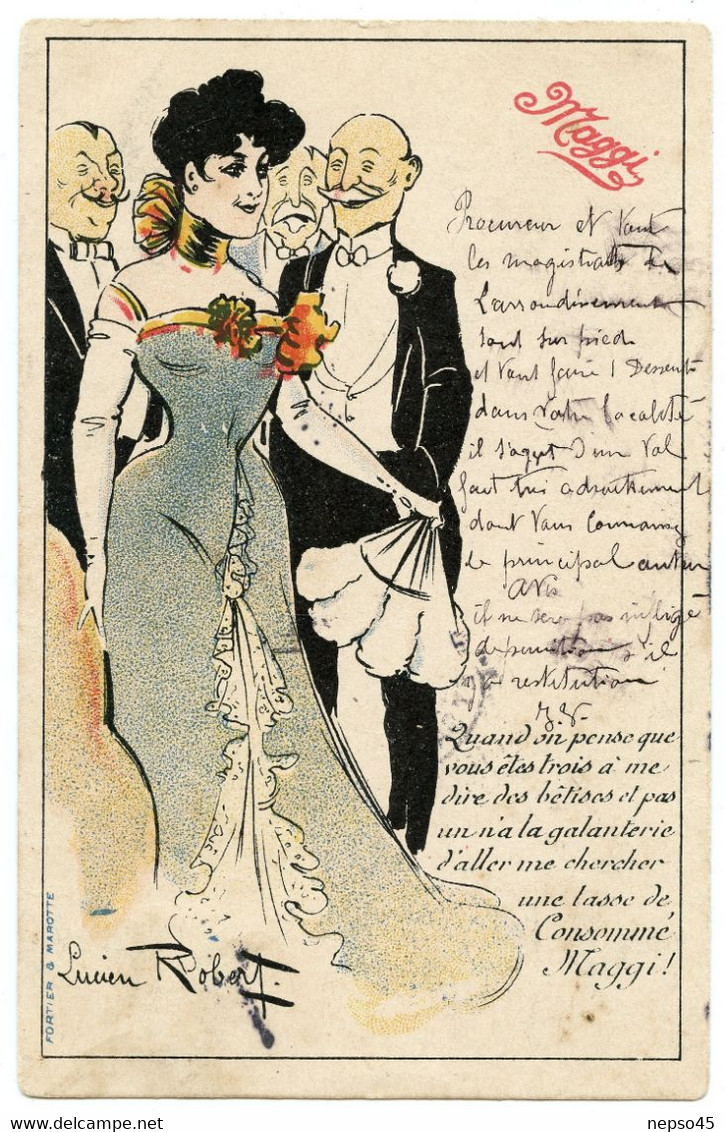 Maggi
Procureur et tout
les magistrats de
L'arrondissement
sont sur pied
et vont faire 1 Dessente
dans votre localité
il s'agit d'un vol
fait très adroitement
dont vous connaissez
le principal auteur
Avis
il ne sera pas infligé
de punition s'il
a restitution
Quand on pense que
vous êtes trois à me
dire des bêtises et pas
un n'a la galanterie
d'aller me chercher
une tasse de
Consommé
Maggi!
Lucien Robert.
FORTIER & MAROTTE
delcampe.net
nepso45